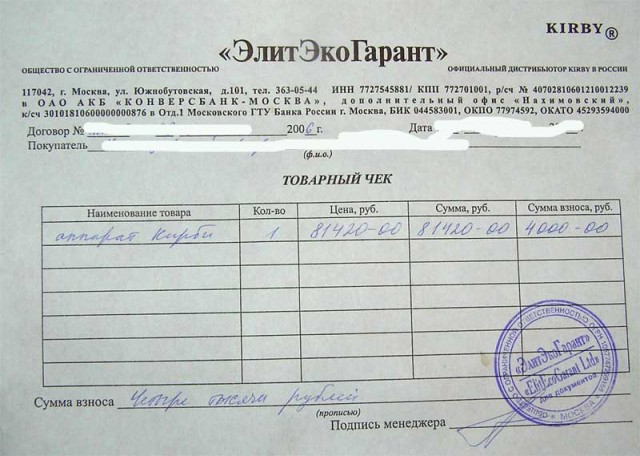 KIRBY®
«ЭлитЭкоГарант»
ОБЩЕСТВО С ОГРАНИЧЕННОЙ ОТВЕТСТВЕННОСТЬЮ ОФИЦИАЛЬНЫЙ ДИСТРИБЬЮТОР KIRBY В РОССИИ
117042, г. Москва, ул. Южнобутовская, д.101, тел. 363-05-44 ИНН 7727545881/ КПП 772701001, р/сч № 40702810601210012239
в ОАО АКБ «КОНВЕРСБАНК-МОСКВА», дополнительный офис «Нахимовский»,
к/сч 30101810600000000876 в Отд.1 Московского ГТУ Банка России г. Москва, БИК 044583001, ОКПО 77974592, ОКАТО 45293594000
Договор № 2006 г. Дата
Покупатель
(ф.и.о.)
ТОВАРНЫЙ ЧЕК
Наименование товара Кол-во Цена, руб. Сумма, руб. Сумма взноса, руб.
аппарат Кирби 1 81420-00 81420-00 4000-00
«ЭлитЭкоГарант»
«EliteEcoGarant Ltd»
для документов
МОСКВА
Сумма взноса Четыре тысячи рублей
(прописью)
Подпись менеджера